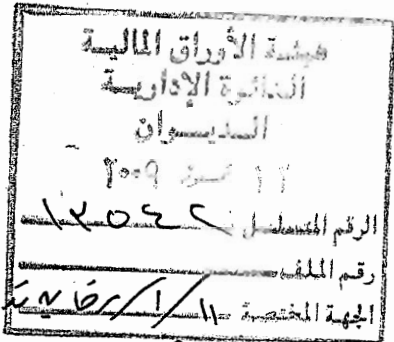 هيئة الأوراق المالية
الدائرة الإدارية
الديوان
٢٠٠٩
الرقم المتسلسل ١٣٥٤٢
رقم الملف
الجهة المختصة ١١/١/